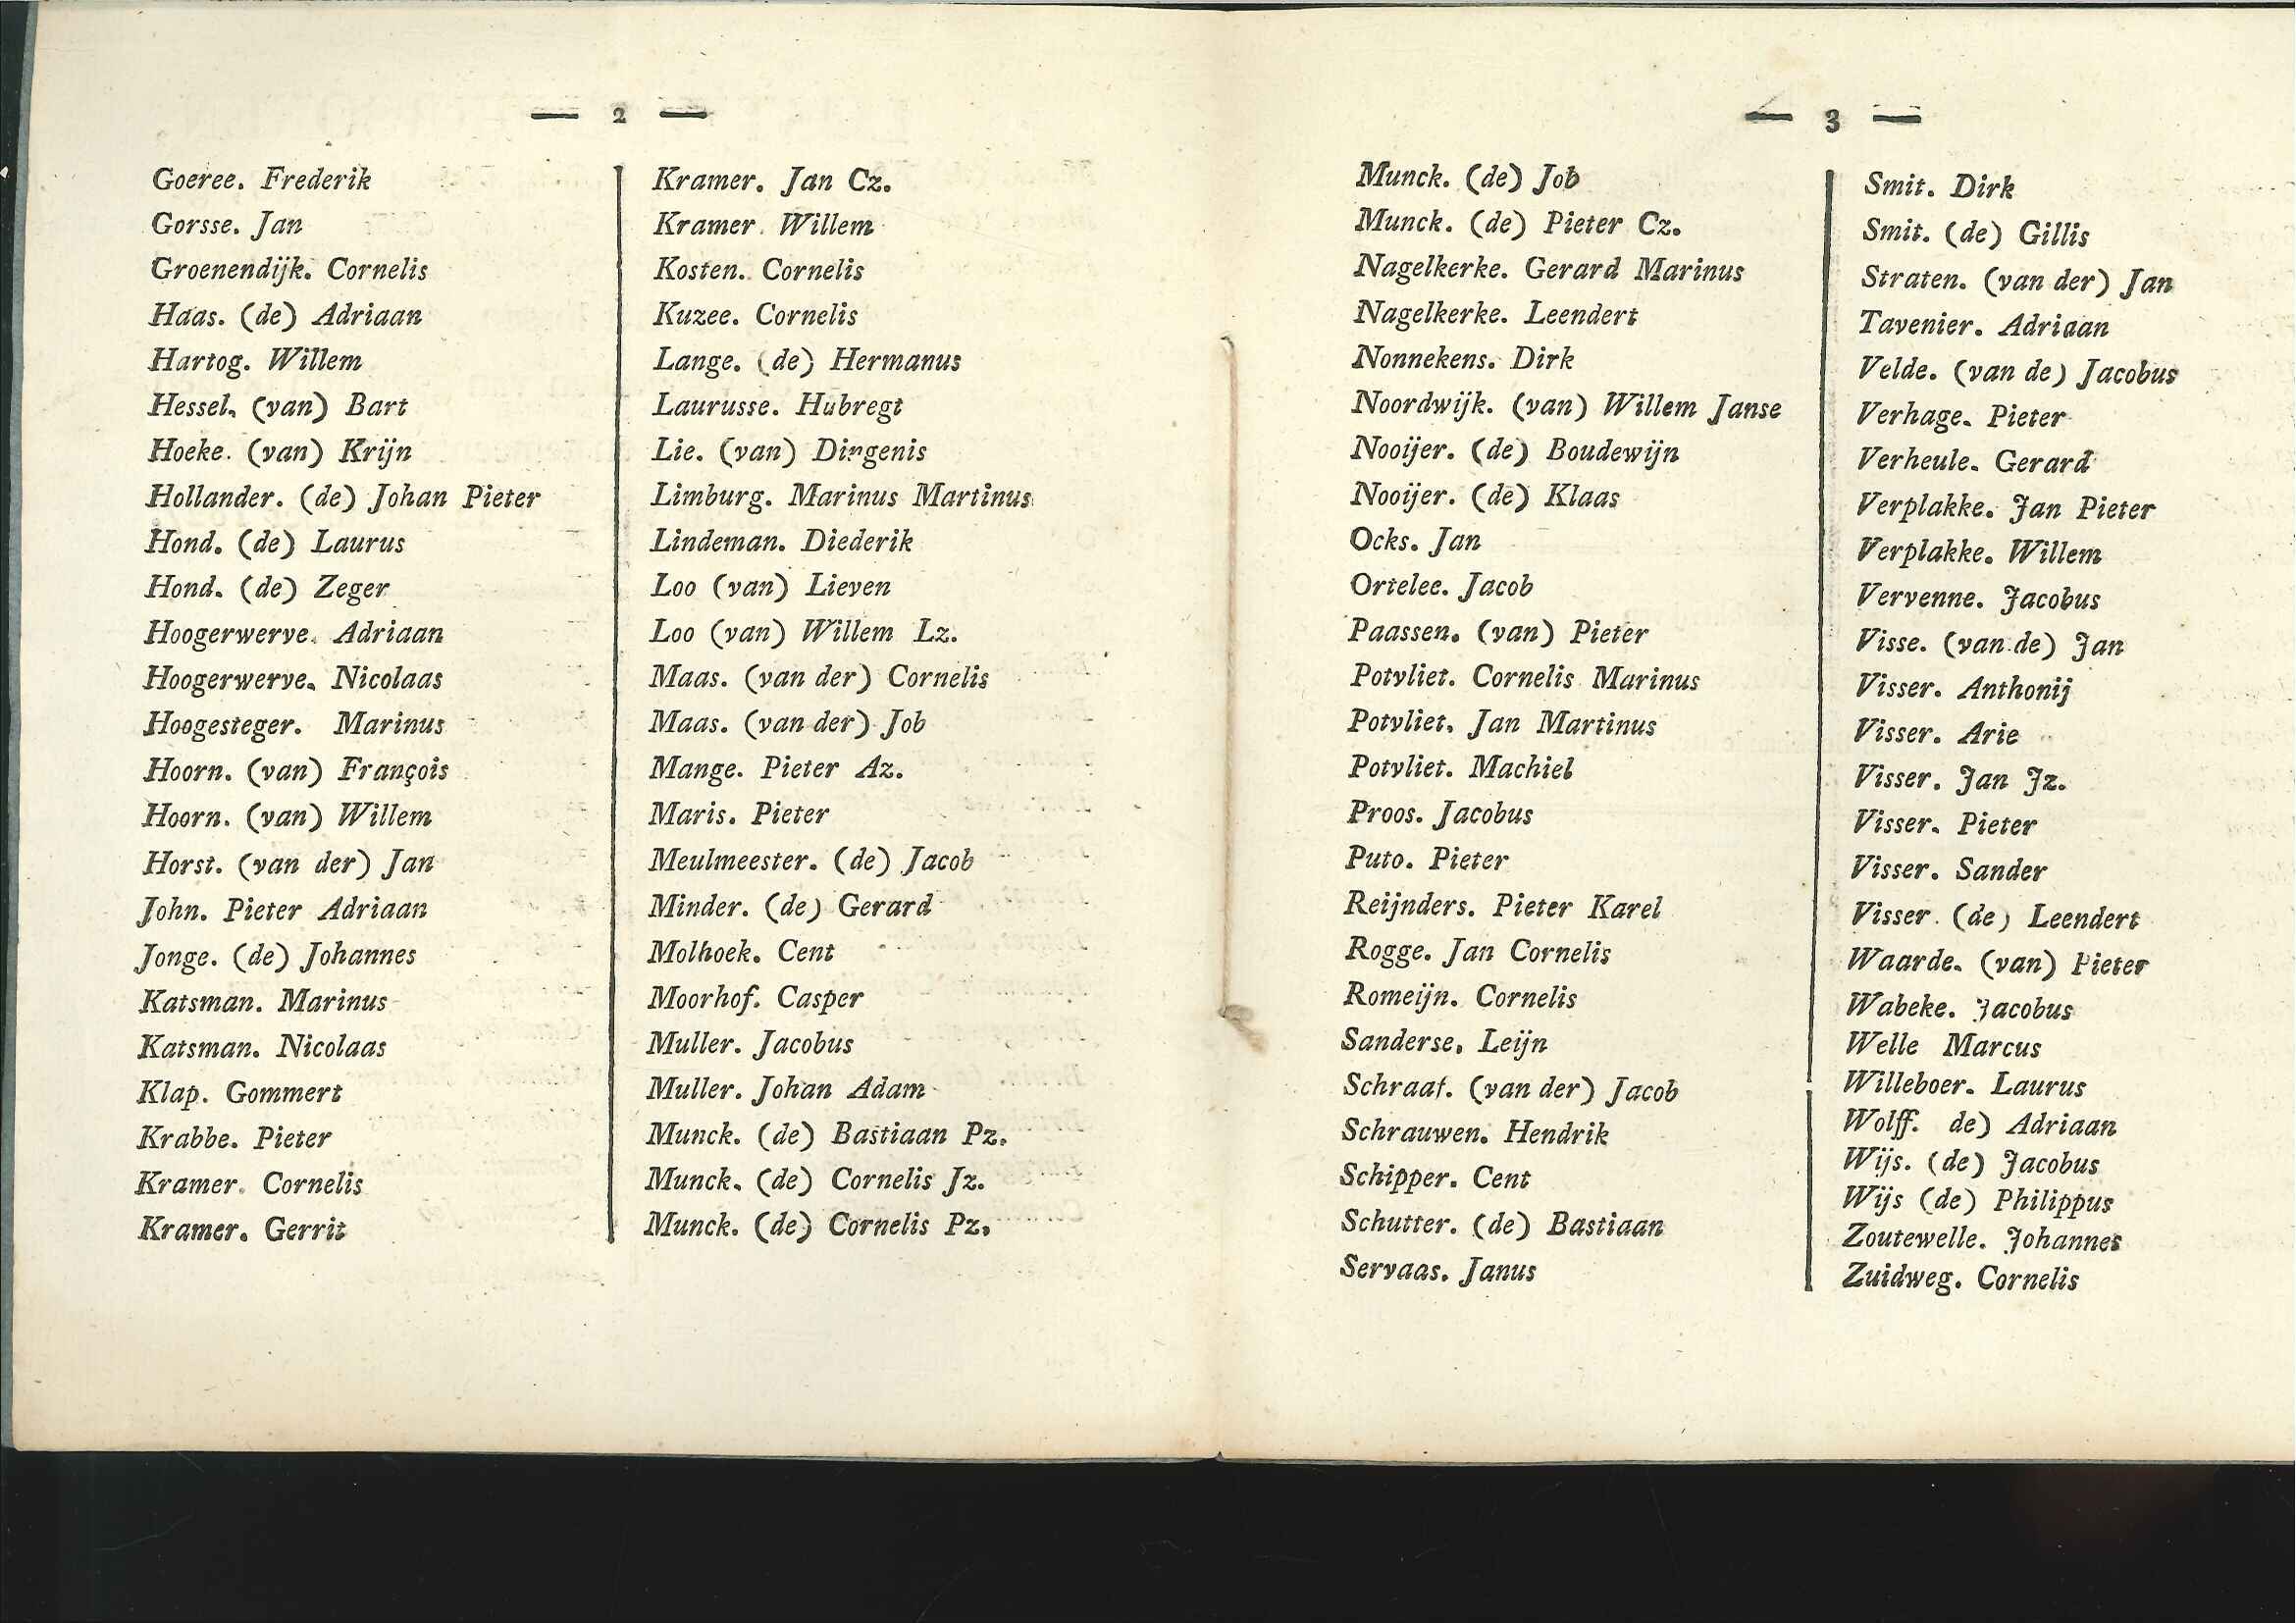 — 2 —
Goeree. Frederik
Gorsse. Jan
Groenendijk. Cornelis
Haas. (de) Adriaan
Hartog. Willem
Hessel. (van) Bart
Hoeke. (van) Krijn
Hollander. (de) Johan Pieter
Hond. (de) Laurus
Hond. (de) Zeger
Hoogerwerve. Adriaan
Hoogerwerve. Nicolaas
Hoogesteger. Marinus
Hoorn. (van) François
Hoorn. (van) Willem
Horst. (van der) Jan
John. Pieter Adriaan
Jonge. (de) Johannes
Katsman. Marinus
Katsman. Nicolaas
Klap. Gommert
Krabbe. Pieter
Kramer. Cornelis
Kramer. Gerrit
Kramer. Jan Cz.
Kramer. Willem
Kosten. Cornelis
Kuzee. Cornelis
Lange. (de) Hermanus
Laurusse. Hubregt
Lie. (van) Dingenis
Limburg. Marinus Martinus
Lindeman. Diederik
Loo (van) Lieven
Loo (van) Willem Lz.
Maas. (van der) Cornelis
Maas. (van der) Job
Mange. Pieter Az.
Maris. Pieter
Meulmeester. (de) Jacob
Minder. (de) Gerard
Molhoek. Cent
Moorhof. Casper
Muller. Jacobus
Muller. Johan Adam
Munck. (de) Bastiaan Pz.
Munck. (de) Cornelis Jz.
Munck. (de) Cornelis Pz.
— 3 —
Munck. (de) Job
Munck. (de) Pieter Cz.
Nagelkerke. Gerard Marinus
Nagelkerke. Leendert
Nonnekens. Dirk
Noordwijk. (van) Willem Janse
Nooijer. (de) Boudewijn
Nooijer. (de) Klaas
Ocks. Jan
Ortelee. Jacob
Paassen. (van) Pieter
Potvliet. Cornelis Marinus
Potvliet. Jan Martinus
Potvliet. Machiel
Proos. Jacobus
Puto. Pieter
Reijnders. Pieter Karel
Rogge. Jan Cornelis
Romeijn. Cornelis
Sanderse. Leijn
Schraaf. (van der) Jacob
Schrauwen. Hendrik
Schipper. Cent
Schutter. (de) Bastiaan
Servaas. Janus
Smit. Dirk
Smit. (de) Gillis
Straten. (van der) Jan
Tavenier. Adriaan
Velde. (van de) Jacobus
Verhage. Pieter
Verheule. Gerard
Verplakke. Jan Pieter
Verplakke. Willem
Vervenne. Jacobus
Visse. (van de) Jan
Visser. Anthonij
Visser. Arie
Visser. Jan Jz.
Visser. Pieter
Visser. Sander
Visser. (de) Leendert
Waarde. (van) Pieter
Wabeke. Jacobus
Welle Marcus
Willeboer. Laurus
Wolff. de) Adriaan
Wijs. (de) Jacobus
Wijs (de) Philippus
Zoutewelle. Johannes
Zuidweg. Cornelis